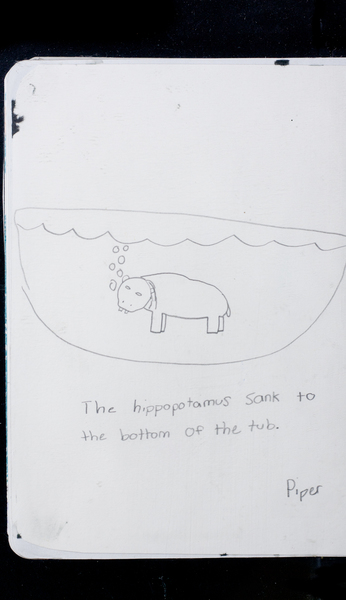 The hippopotamus sank to
the bottom of the tub.
Piper